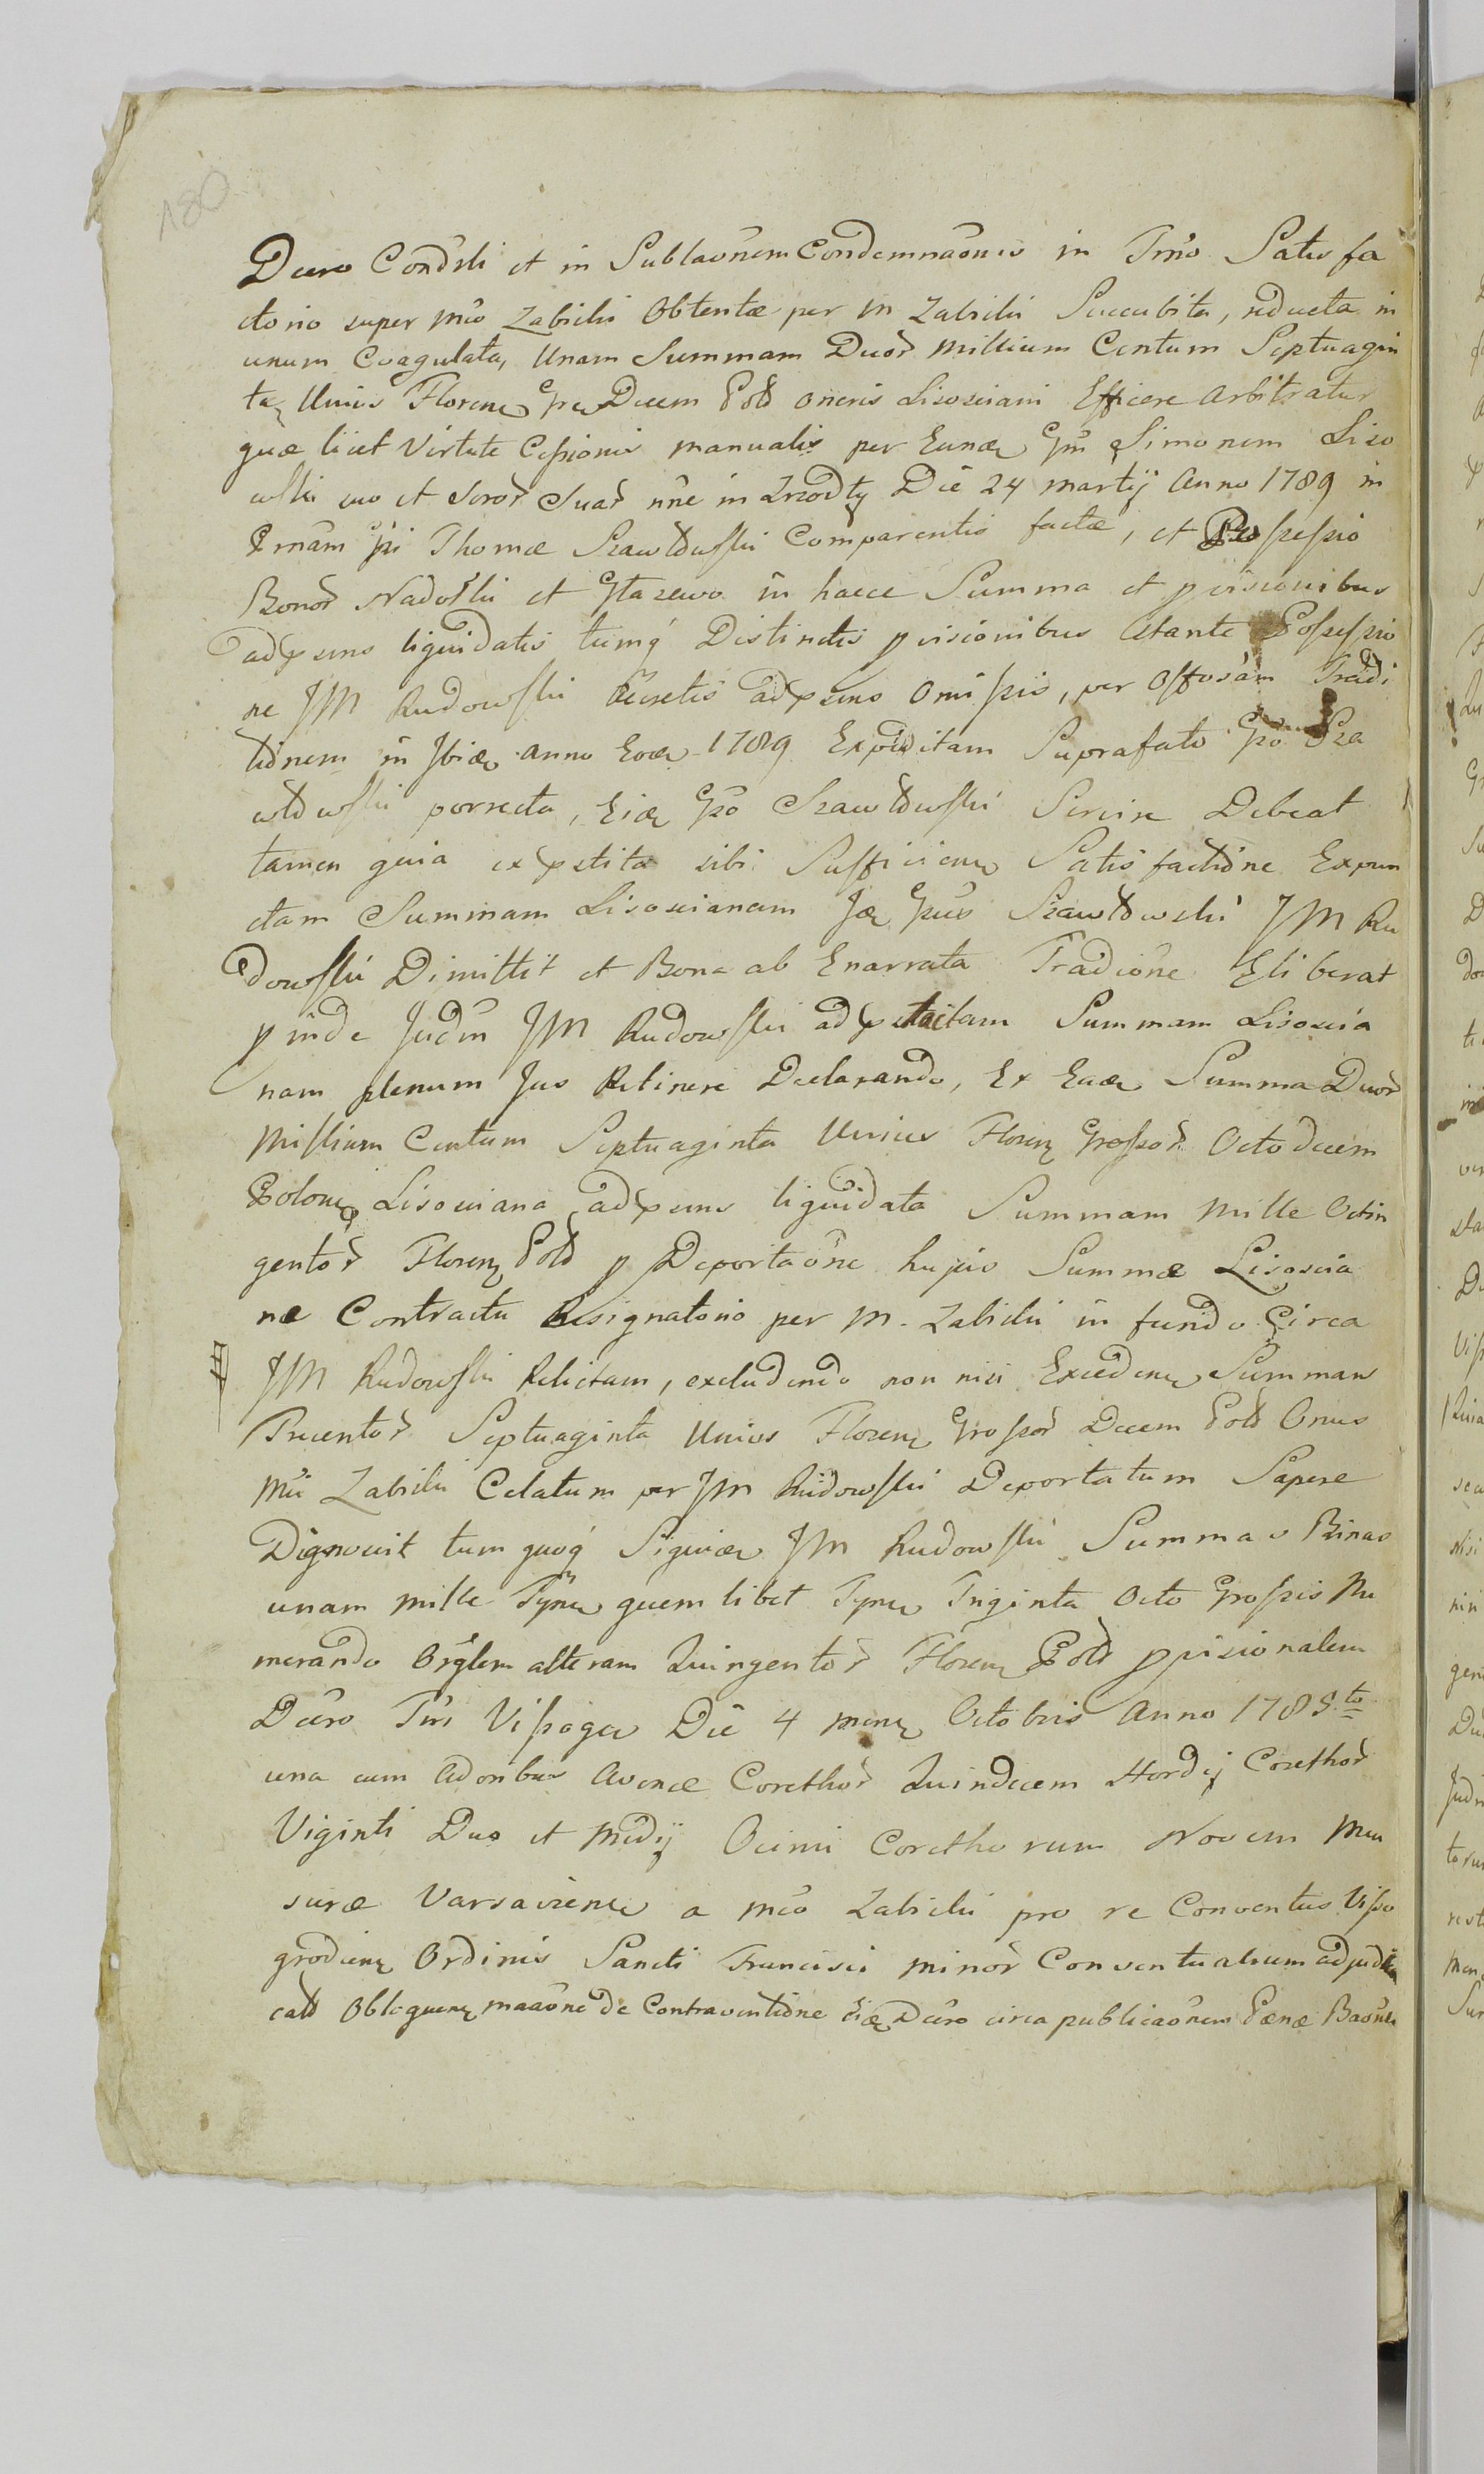 180
Decro Condsli et in Sublaõnem Condemnaõnis in Trno Satisfa
ctorio super Mco Zabicki Obtentæ per M Zabicki Succubita, reducta in
unum Coagulata, Unam Summam Duor Millium Centum Septuagin
ta Unius Floren Gr Decem Pol oneris Lisosciani Efficere Arbitratur
quæ licet Virtute Cessionis manualis per Eunde Gm Simonem Liso
wski suo et Soror Suar nne in Die 24 Martij Anno 1789 in
Prnam Gsi Thomæ Szawłowski Comparentis factæ, et Possessio
Bonor Nadołki et Głazewo in haece Summa et pvisionibus
adpsens liquidatis tumq Distinctis pvisionibus Stante Possessio
ne JM Rudowski decretis adpsens omissis, per Offosam Tradi
tionem in anno Eode 1789 Expeditam Suprafato Gso Sza
włowski porrecta, Eide Gso Szawłowski Servire Debeat
tamen quia expetita sibi Sufficien Satisfactione Expun
ctam Summam Lisoscianam Ide Gsus Szawłowski JM Ru
dowski Dimittit et Bona ab Enarrata Tradione Eliberat
pinde Judm JM Rudowski ad Summam Lisoscia
nam plenum Jus Retinere Declarando, Ex Eade Summa Duor
Millium Centum Septuaginta Unius Floren Grossor Octodecem
Polon Lisosciana adpsens liquidata Summam Mille Octin
gentor Floren Pol p Deportaõne hujus Summæ Lisoscia
næ Contractu Resignatorio per M. Zabicki in fundo Circa
JM Rudowski Relictam, excludendo non nisi Exceden Summam
Trecentor Septuaginta Unius Floren Grossor Decem Pol Onus
Mci Zabicki Celatum per JM Rudowski Deportatum Sapere
Dignovit tum quoq Siquide JM Rudowski Summas Binas
unam Mille Tynf quemlibet Tynf Triginta Octo Grossis Nu
merando Orglem alteram Quingentor Floren Pol pvisionalem
Decro Tri Vissogr Die 4 mens Octobris Anno 1785.to
una cum Adoribus Avenæ Corethor Quindecem Hordej Corethor
Viginti Duo et Medij Ocimi Corethorum Novem Men
suræ Varsavien a Mco Zabicki pro re Conventus Visso
grodien Ordinis Sancti Francisci Minor Conventualium adjudi
cat Obloquen maaõne de Contraventione Eide Decro circa publicaõnem Pænæ Baõnis